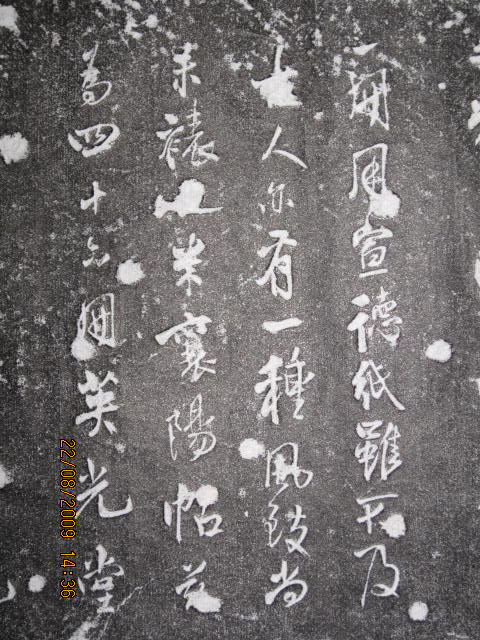 一開用宣德紙雖不及
古人亦有一種風致尚
未裱以米襄陽帖
為四十英光堂
22/08/2009 14:36